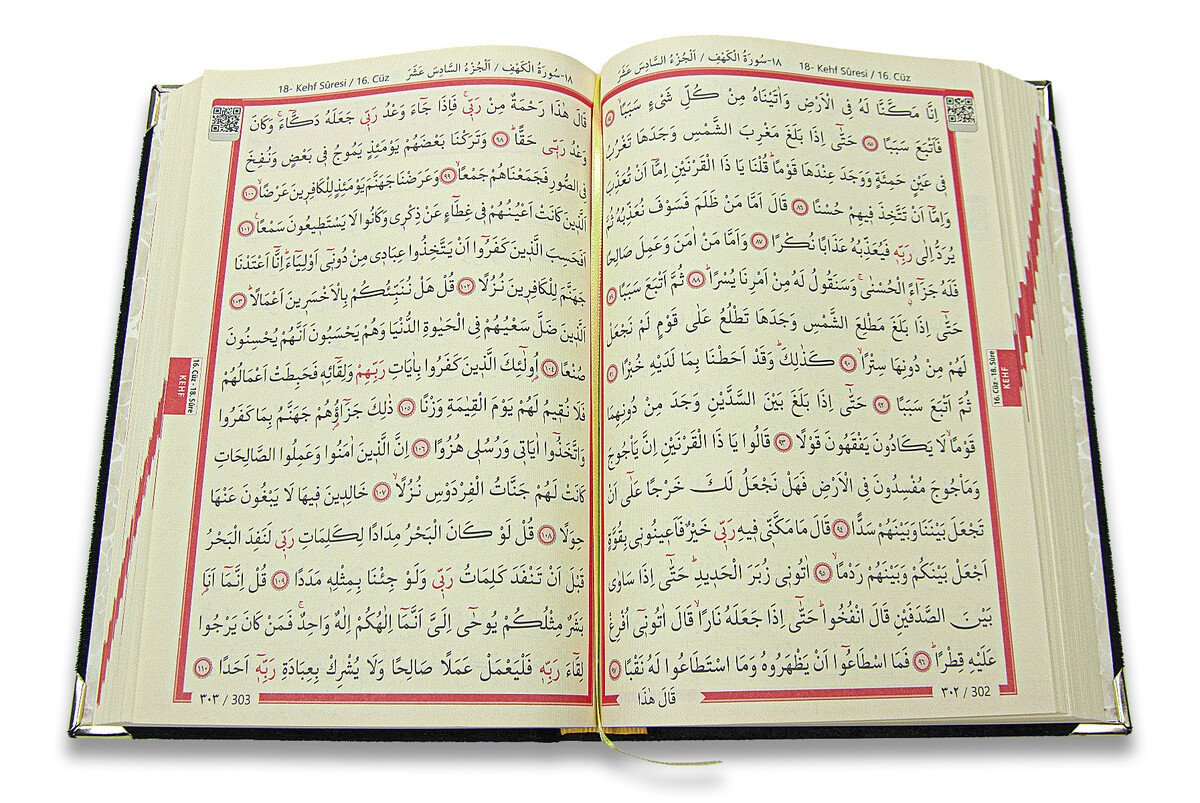 ١٨-سُورَةُ الْكَهْفِ / اَلْجُزْءُ السَّادِسَ عَشَرَ 18- Kehf Sûresi / 16. Cüz
اِنَّا مَكَّنَّا لَهُ فِى الْاَرْضِ وَاٰتَيْنَاهُ مِنْ كُلِّ شَىْءٍ سَبَبًاۙ
فَاَتْبَعَ سَبَبًا ﴿٨٥﴾ حَتّٰٓى اِذَا بَلَغَ مَغْرِبَ الشَّمْسِ وَجَدَهَا تَغْرُبُ
فٖى عَيْنٍ حَمِئَةٍ وَوَجَدَ عِنْدَهَا قَوْمًاؕ قُلْنَا يَا ذَا الْقَرْنَيْنِ اِمَّٓا اَنْ تُعَذِّبَ
وَاِمَّٓا اَنْ تَتَّخِذَ فٖيهِمْ حُسْنًا ﴿٨٦﴾ قَالَ اَمَّا مَنْ ظَلَمَ فَسَوْفَ نُعَذِّبُهُ ثُمَّ
يُرَدُّ اِلٰى رَبِّهٖ فَيُعَذِّبُهُ عَذَابًا نُكْرًا ﴿٨٧﴾ وَاَمَّا مَنْ اٰمَنَ وَعَمِلَ صَالِحًا
فَلَهُ جَزَٓاءًۨ الْحُسْنٰىۚ وَسَنَقُولُ لَهُ مِنْ اَمْرِنَا يُسْرًاؕ ﴿٨٨﴾ ثُمَّ اَتْبَعَ سَبَبًا ﴿٨٩﴾
حَتّٰٓى اِذَا بَلَغَ مَطْلِعَ الشَّمْسِ وَجَدَهَا تَطْلُعُ عَلٰى قَوْمٍ لَمْ نَجْعَلْ
لَهُمْ مِنْ دُونِهَا سِتْرًاۙ ﴿٩٠﴾ كَذٰلِكَؕ وَقَدْ اَحَطْنَا بِمَا لَدَيْهِ خُبْرًا ﴿٩١﴾
ثُمَّ اَتْبَعَ سَبَبًا ﴿٩٢﴾ حَتّٰٓى اِذَا بَلَغَ بَيْنَ السَّدَّيْنِ وَجَدَ مِنْ دُونِهِمَا
قَوْمًاۙ لَا يَكَادُونَ يَفْقَهُونَ قَوْلًا ﴿٩٣﴾ قَالُوا يَا ذَا الْقَرْنَيْنِ اِنَّ يَاْجُوجَ
وَمَاْجُوجَ مُفْسِدُونَ فِى الْاَرْضِ فَهَلْ نَجْعَلُ لَكَ خَرْجًا عَلٰٓى اَنْ
تَجْعَلَ بَيْنَنَا وَبَيْنَهُمْ سَدًّا ﴿٩٤﴾ قَالَ مَا مَكَّنّٖى فٖيهِ رَبّٖى خَيْرٌ فَاَعٖينُونٖى بِقُوَّةٍ
اَجْعَلْ بَيْنَكُمْ وَبَيْنَهُمْ رَدْمًاۙ ﴿٩٥﴾ اٰتُونٖى زُبَرَ الْحَدٖيدِؕ حَتّٰٓى اِذَا سَاوٰى
بَيْنَ الصَّدَفَيْنِ قَالَ انْفُخُواؕ حَتّٰٓى اِذَا جَعَلَهُ نَارًاۙ قَالَ اٰتُونٖٓى اُفْرِغْ
عَلَيْهِ قِطْرًاؕ ﴿٩٦﴾ فَمَا اسْطَاعُٓوا اَنْ يَظْهَرُوهُ وَمَا اسْتَطَاعُوا لَهُ نَقْبًا ﴿٩٧﴾
قَالَ هٰذَا
٣٠٢ / 302
16. Cüz - 18. Sûre
KEHF
18- Kehf Sûresi / 16. Cüz ١٨-سُورَةُ الْكَهْفِ / اَلْجُزْءُ السَّادِسَ عَشَرَ
قَالَ هٰذَا رَحْمَةٌ مِنْ رَبّٖىۚ فَاِذَا جَٓاءَ وَعْدُ رَبّٖى جَعَلَهُ دَكَّٓاءَۚ وَكَانَ
وَعْدُ رَبّٖى حَقًّاؕ ﴿٩٨﴾ وَتَرَكْنَا بَعْضَهُمْ يَوْمَئِذٍ يَمُوجُ فٖى بَعْضٍ وَنُفِخَ
فِى الصُّورِ فَجَمَعْنَاهُمْ جَمْعًاۙ ﴿٩٩﴾ وَعَرَضْنَا جَهَنَّمَ يَوْمَئِذٍ لِلْكَافِرٖينَ عَرْضًاۙ ﴿١٠٠﴾
اَلَّذٖينَ كَانَتْ اَعْيُنُهُمْ فٖى غِطَٓاءٍ عَنْ ذِكْرٖى وَكَانُوا لَا يَسْتَطٖيعُونَ سَمْعًاۚ ﴿١٠١﴾
اَفَحَسِبَ الَّذٖينَ كَفَرُٓوا اَنْ يَتَّخِذُوا عِبَادٖى مِنْ دُونٖٓى اَوْلِيَٓاءَؕ اِنَّٓا اَعْتَدْنَا
جَهَنَّمَ لِلْكَافِرٖينَ نُزُلًا ﴿١٠٢﴾ قُلْ هَلْ نُنَبِّئُكُمْ بِالْاَخْسَرٖينَ اَعْمَالًاؕ ﴿١٠٣﴾
اَلَّذٖينَ ضَلَّ سَعْيُهُمْ فِى الْحَيٰوةِ الدُّنْيَا وَهُمْ يَحْسَبُونَ اَنَّهُمْ يُحْسِنُونَ
صُنْعًا ﴿١٠٤﴾ اُو۬لٰٓئِكَ الَّذٖينَ كَفَرُوا بِاٰيَاتِ رَبِّهِمْ وَلِقَٓائِهٖ فَحَبِطَتْ اَعْمَالُهُمْ
فَلَا نُقٖيمُ لَهُمْ يَوْمَ الْقِيٰمَةِ وَزْنًا ﴿١٠٥﴾ ذٰلِكَ جَزَٓاؤُ۬هُمْ جَهَنَّمُ بِمَا كَفَرُوا
وَاتَّخَذُٓوا اٰيَاتٖى وَرُسُلٖى هُزُوًا ﴿١٠٦﴾ اِنَّ الَّذٖينَ اٰمَنُوا وَعَمِلُوا الصَّالِحَاتِ
كَانَتْ لَهُمْ جَنَّاتُ الْفِرْدَوْسِ نُزُلًاۙ ﴿١٠٧﴾ خَالِدٖينَ فٖيهَا لَا يَبْغُونَ عَنْهَا
حِوَلًا ﴿١٠٨﴾ قُلْ لَوْ كَانَ الْبَحْرُ مِدَادًا لِكَلِمَاتِ رَبّٖى لَنَفِدَ الْبَحْرُ
قَبْلَ اَنْ تَنْفَدَ كَلِمَاتُ رَبّٖى وَلَوْ جِئْنَا بِمِثْلِهٖ مَدَدًا ﴿١٠٩﴾ قُلْ اِنَّمَٓا اَنَا۬
بَشَرٌ مِثْلُكُمْ يُوحٰٓى اِلَىَّ اَنَّمَٓا اِلٰهُكُمْ اِلٰهٌ وَاحِدٌۚ فَمَنْ كَانَ يَرْجُوا
لِقَٓاءَ رَبِّهٖ فَلْيَعْمَلْ عَمَلًا صَالِحًا وَلَا يُشْرِكْ بِعِبَادَةِ رَبِّهٖٓ اَحَدًا ﴿١١٠﴾
٣٠٣ / 303
16. Cüz - 18. Sûre
KEHF